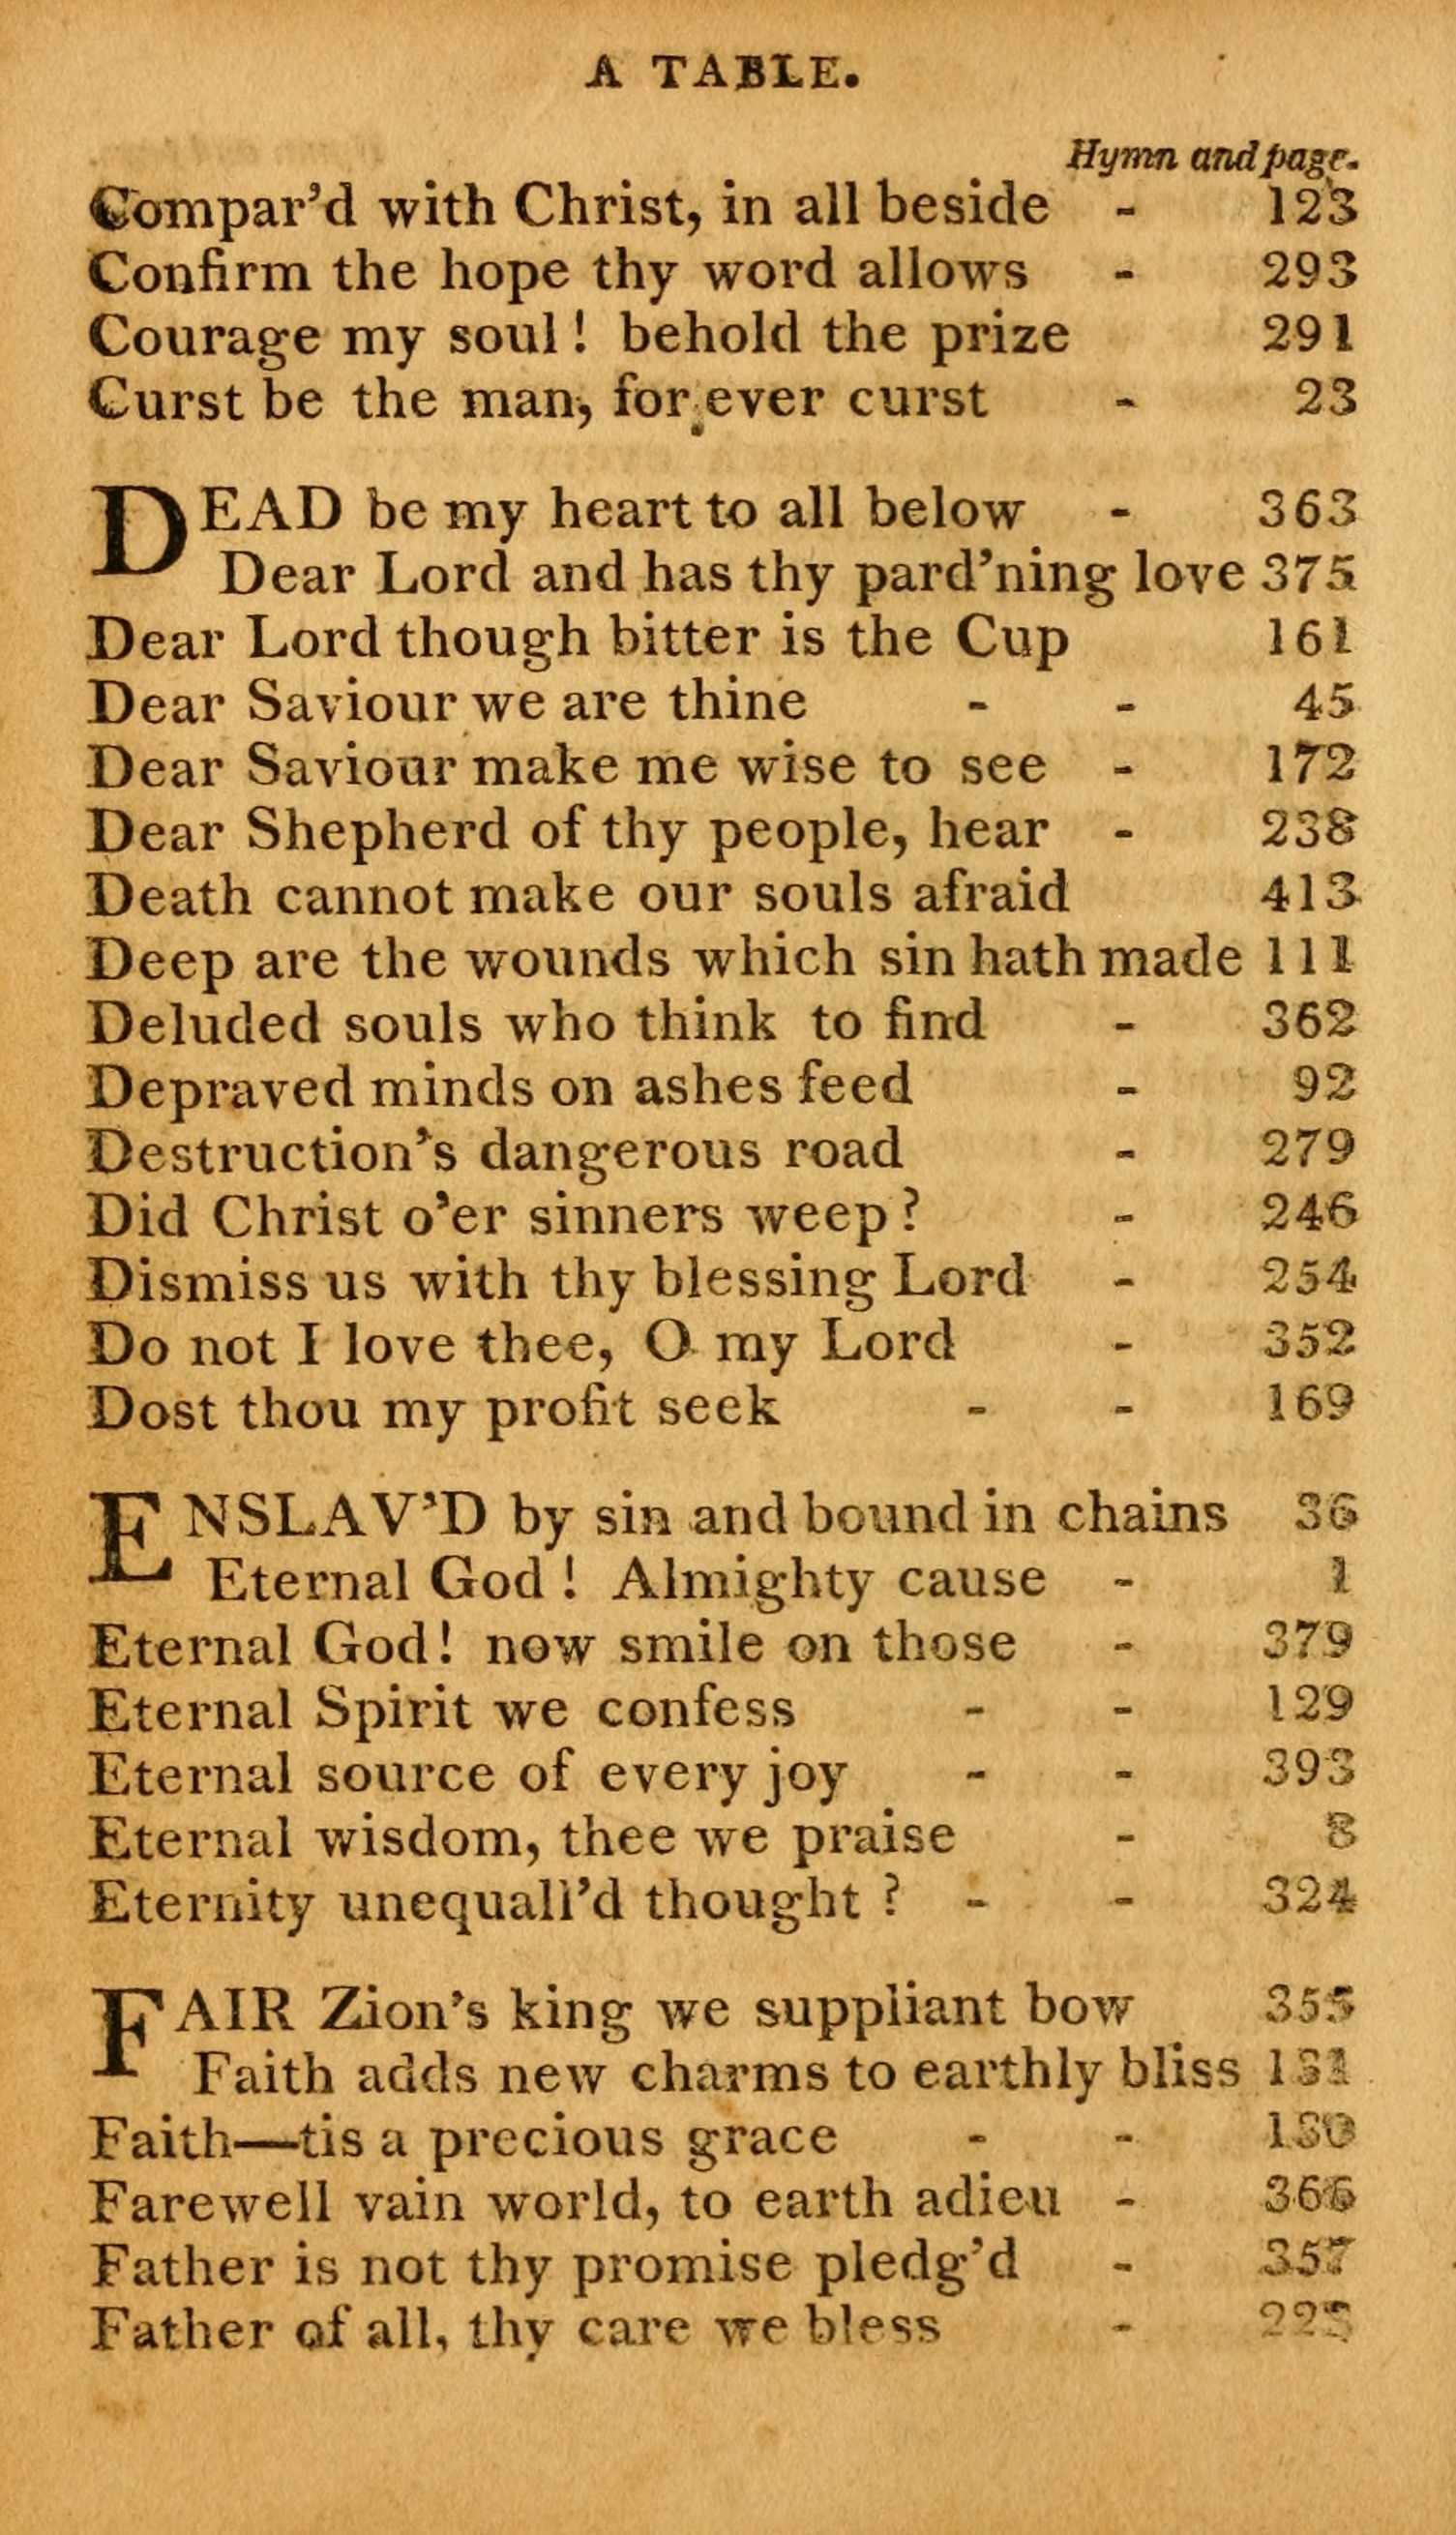 A TABLE.
Hymn and page.
Compar'd with Christ, in all beside - 123
Confirm the hope thy word allows - 293
Courage my soul! behold the prize 291
Curst be the man, for ever curst - 23
DEAD be my heart to all below - 363
Dear Lord and has thy pard'ning love 375
Dear Lord though bitter is the Cup 161
Dear Saviour we are thine - - 45
Dear Saviour make me wise to see - 172
Dear Shepherd of thy people, hear - 238
Death cannot make our souls afraid 413
Deep are the wounds which sin hath made 111
Deluded souls who think to find - 362
Depraved minds on ashes feed - 92
Destruction's dangerous road - 279
Did Christ o'er sinners weep? - 246
Dismiss us with thy blessing Lord - 254
Do not I love thee, O my Lord - 352
Dost thou my profit seek - - 169
ENSLAV'D by sin and bound in chains 36
Eternal God! Almighty cause - 1
Eternal God! now smile on those - 379
Eternal Spirit we confess - - 129
Eternal source of every joy - - 393
Eternal wisdom, thee we praise - 8
Eternity unequall'd thought? - - 324
FAIR Zion's king we suppliant bow 355
Faith adds new charms to earthly bliss 131
Faith—tis a precious grace - - 130
Farewell vain world, to earth adieu - 366
Father is not thy promise pledg'd - 357
Father of all, thy care we bless -